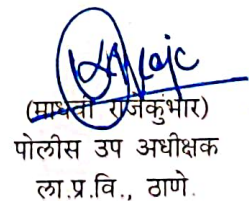 (माधवी राजेकुंभार)
पोलीस उप अधीक्षक
ला.प्र.वि., ठाणे.